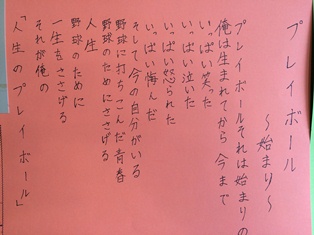 プレイボール
～始まり～
プレイボールそれは始まりの
俺は生まれてから今まで
いっぱい笑った
いっぱい泣いた
いっぱい怒られた
いっぱい悔んだ
そして今の自分がいる
野球に打ちこんだ青春
野球のためにささげる
人生
野球のために
一生をささげる
それが俺の
「人生のプレイボール」